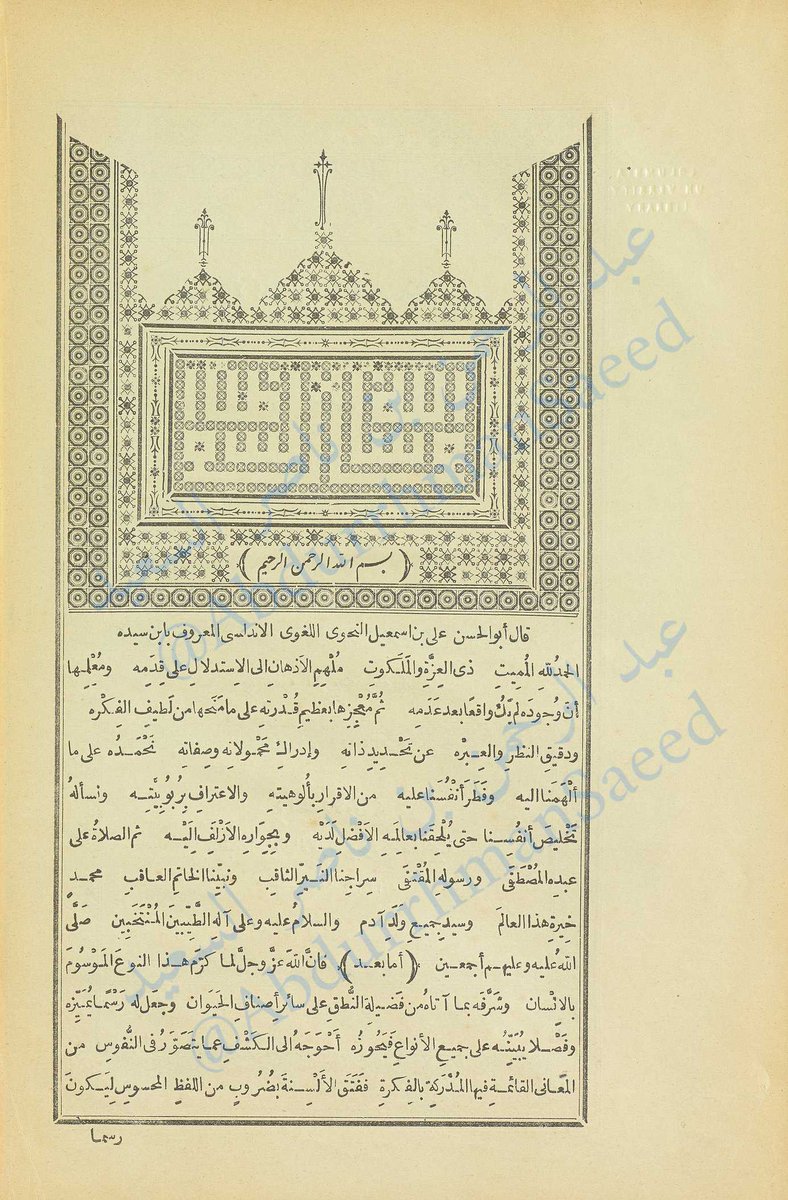 ﴿ بسم الله الرحمن الرحيم ﴾
قال أبو الحسن على بن اسمعيل النحوى اللغوى الاندلسى المعروف بابن سيده
الحمد لله المُمِيتِ ذى العِزَّةِ والمَلَكوت مُلْهِمِ الأذهان الى الاستدلال على قِدَمه ومُعْلِمِها
أنَّ وُجوده لم يَكُ واقعًا بعد عَدَمه ثُمَّ مُعْجِزِها بعظيم قُدْرته على ما مَنَحها من لَطيف الفِكْره
ودقيقِ النظر والعِبْره عن تَحْديد ذاته وإدراكِ مَحْمولاته وصِفاته نَحْمَدُه على ما
ألْهَمَنا اليه وفَطَر أنْفُسَنا عليه من الاقرار بأُلوهيته والاعترافِ بِرُبوبِيَّتِه ونسألهُ
تَخْليصَ أنفُسِنا حتى يُلْحِقَنا بعالَمِه الأفضلِ لَدَيْه وبِجِوَارِه الأزْلَفِ الَيْه ثم الصلاةُ على
عبدِه المُصْطَفَى ورسوله المُقْتَفَى سِرَاجِنا النَّيِّر الثاقب ونبيِّنا الخاتِم العاقب محمدٍ
خِيرةِ هذا العالَم وسيدِ جميعِ وَلَد آدم والسلامُ عليه وعلى آله الطَّيِّبينَ المُنْتَخَبِين صَلَّى
اللهُ عليه وعليهم أجمعين ﴿ أما بعد ﴾ فانَّ اللهَ عزَّ وجلَّ لما كَرَّم هذا النوع المَوْسُومَ
بالانْسان وشَرَّفه بما آتاه من فَضيلة النُّطق على سائر أصناف الحَيَوان وجعل له رَسْمًا يُمَيِّزه
وفَصْلا يُبَيِّنُه على جميع الأنواع فيَحُوزه أَحْوَجَه الى الكَشْف عما يَتَصَوَّر فى النُّفوس من
المَعَانى القائمة فيها المُدْرَكةِ بالفِكرة فَفَتَق الألْسِنةَ بضُرُوبٍ من اللفظِ المحسوسِ لِيَكُونَ
رسما
عبد الرحمن بن ناصر السعيد
@AbdulrhmanSaeed